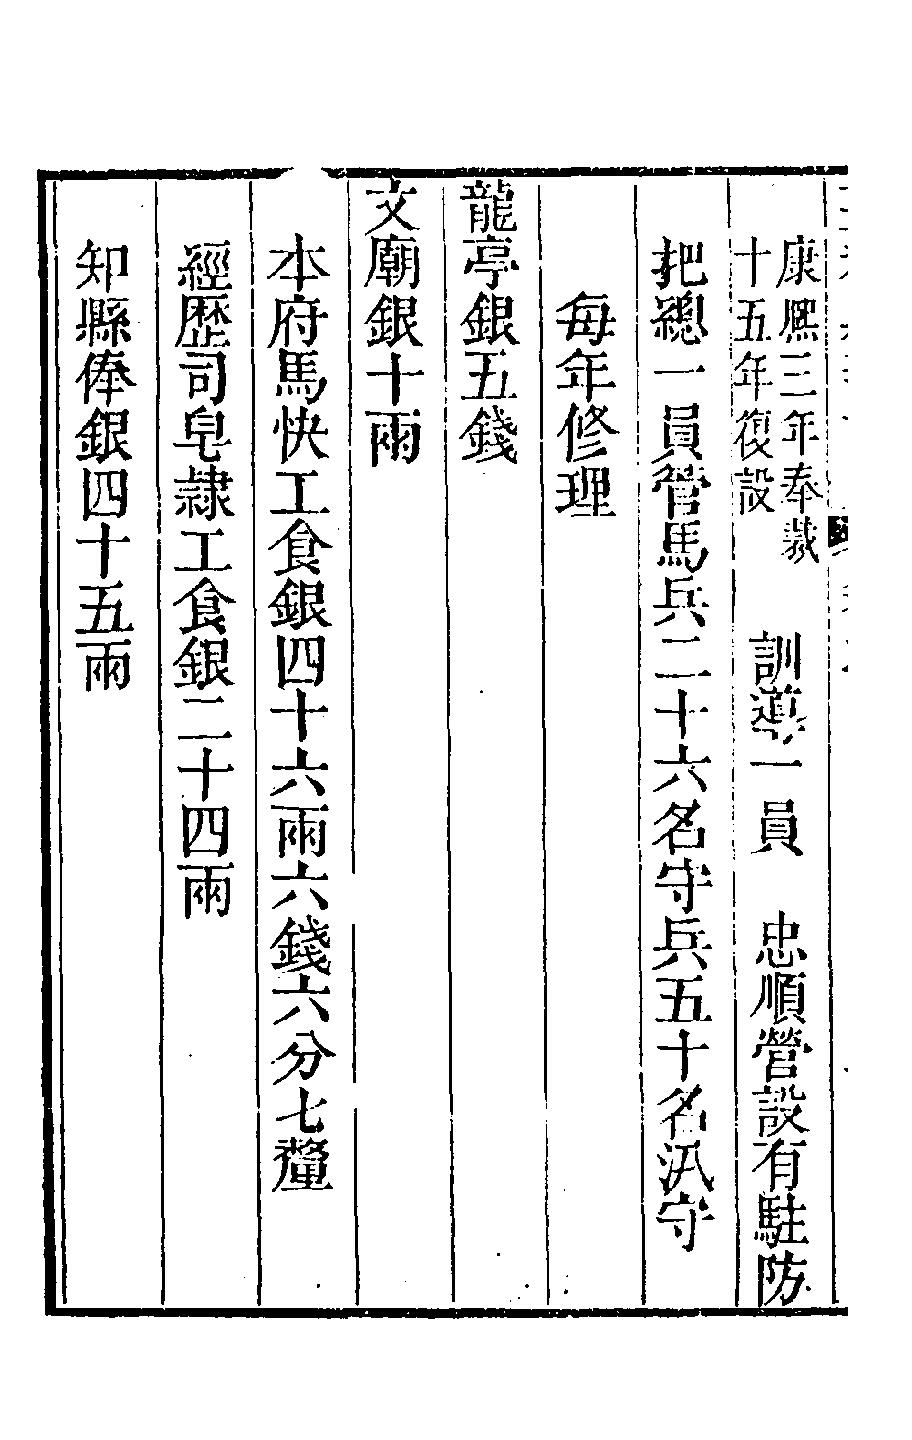 康熙三年奉裁
十五年復設
訓導一員　忠順營設有駐防
把總一員管馬兵二十六名守兵五十名汛守
每年修理
龍亭銀五錢
文廟銀十兩
本府馬快工食銀四十六兩六錢六分七釐
經歴司皂隷工食銀二十四兩
知縣俸銀四十五兩